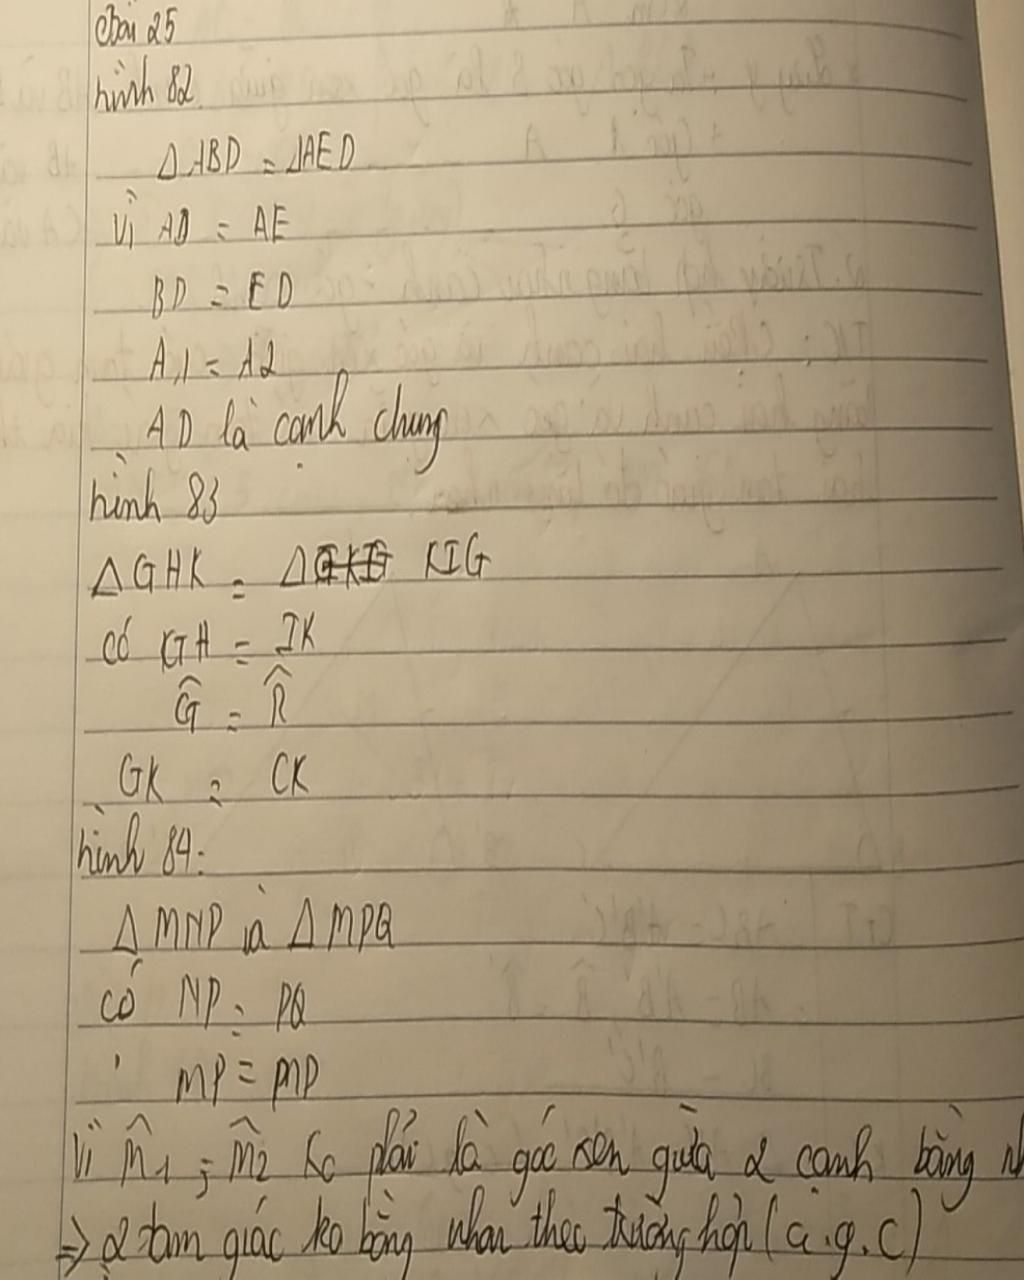 bài 25
hình 82
Δ ABD = ΔAED
Vì AB = AE
BD = ED
A1 = A2
AD là cạnh chung
hình 83
Δ GHK = Δ KIG
có GH = IK
Ĝ = K̂
GK = CK
hình 84:
Δ MNP và Δ MPQ
có NP = PQ
MP = MP
Vì M̂1 ; M̂2 ko phải là góc xen giữa 2 cạnh bằng
=> 2 tam giác ko bằng nhau theo trường hợp (c.g.c)